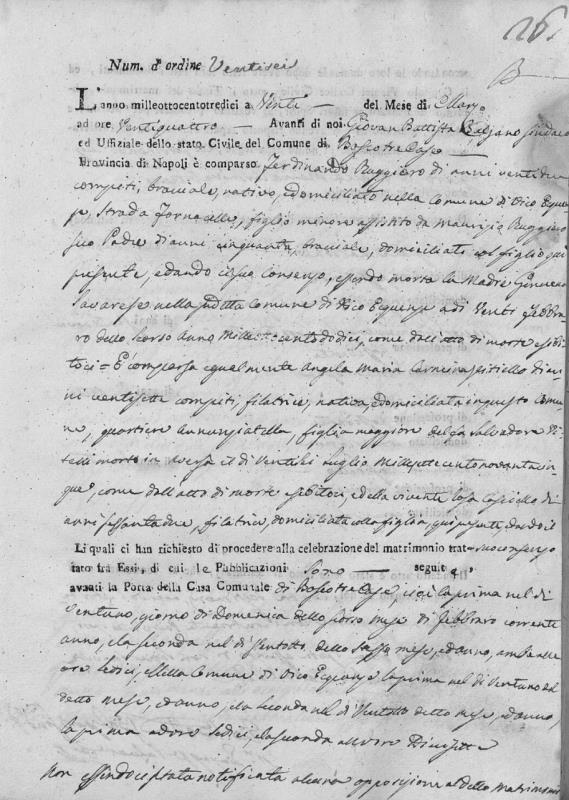 26.
Num. d'ordine Ventisei
L'anno milleottocentotredici a Venti — del Mese di Marzo
ad ore Ventiquattro — Avanti di noi Giovan Battista sindaco
ed Uffiziale dello stato Civile del Comune di Boscotrecase
Provincia di Napoli è comparso Ferdinando Ruggiero di anni ventidue
compiti, bracciale, nativo, e domiciliato nella Comune di Vico Equen
se, strada Fornacelle, figlio minore assistito da Maurizio Ruggiero
suo Padre di anni cinquanta, bracciale, domiciliato col figlio qui
presente, e dando il suo consenso, essendo morta la Madre
Savarese nella sudetta Comune di Vico Equense a dì Venti Febbra
ro dello scorso Anno Milleottocentododici, come dall'atto di morte esibi
toci = E' comparsa egualmente Angela Maria di an
ni ventisette compiti, filatrice, nativa, e domiciliata in questo Comu
ne, quartiere Annunziatella, figlia maggiore del fu Salvadore Vi
telli morto in Aversa il dì Luglio Millesettecentonovantacin
que, come dall'atto di morte esibitoci, e della vivente Rosa di
anni sessantadue, filatrice, domiciliata colla figlia, qui presente, e dando il
suo consenso
Li quali ci han richiesto di procedere alla celebrazione del matrimonio trat-
tato fra Essi, di cui le Pubblicazioni sono — seguite
avanti la Porta della Casa Comunale di Boscotrecase, cioè la prima nel dì
Ventuno, giorno di Domenica dello scorso mese di Febbraro corrente
anno, e la seconda nel dì Ventotto dello stesso mese, ed anno, ambe alle
ore sedici, e nella Comune di Vico Equense la prima nel dì Ventuno del
detto mese, ed anno, e la seconda nel dì Ventotto detto mese, ed anno,
la prima ad ore sedici, e la seconda alle ore Diecisette
Non essendoci stata notificata alcuna opposizione al detto matrimonio